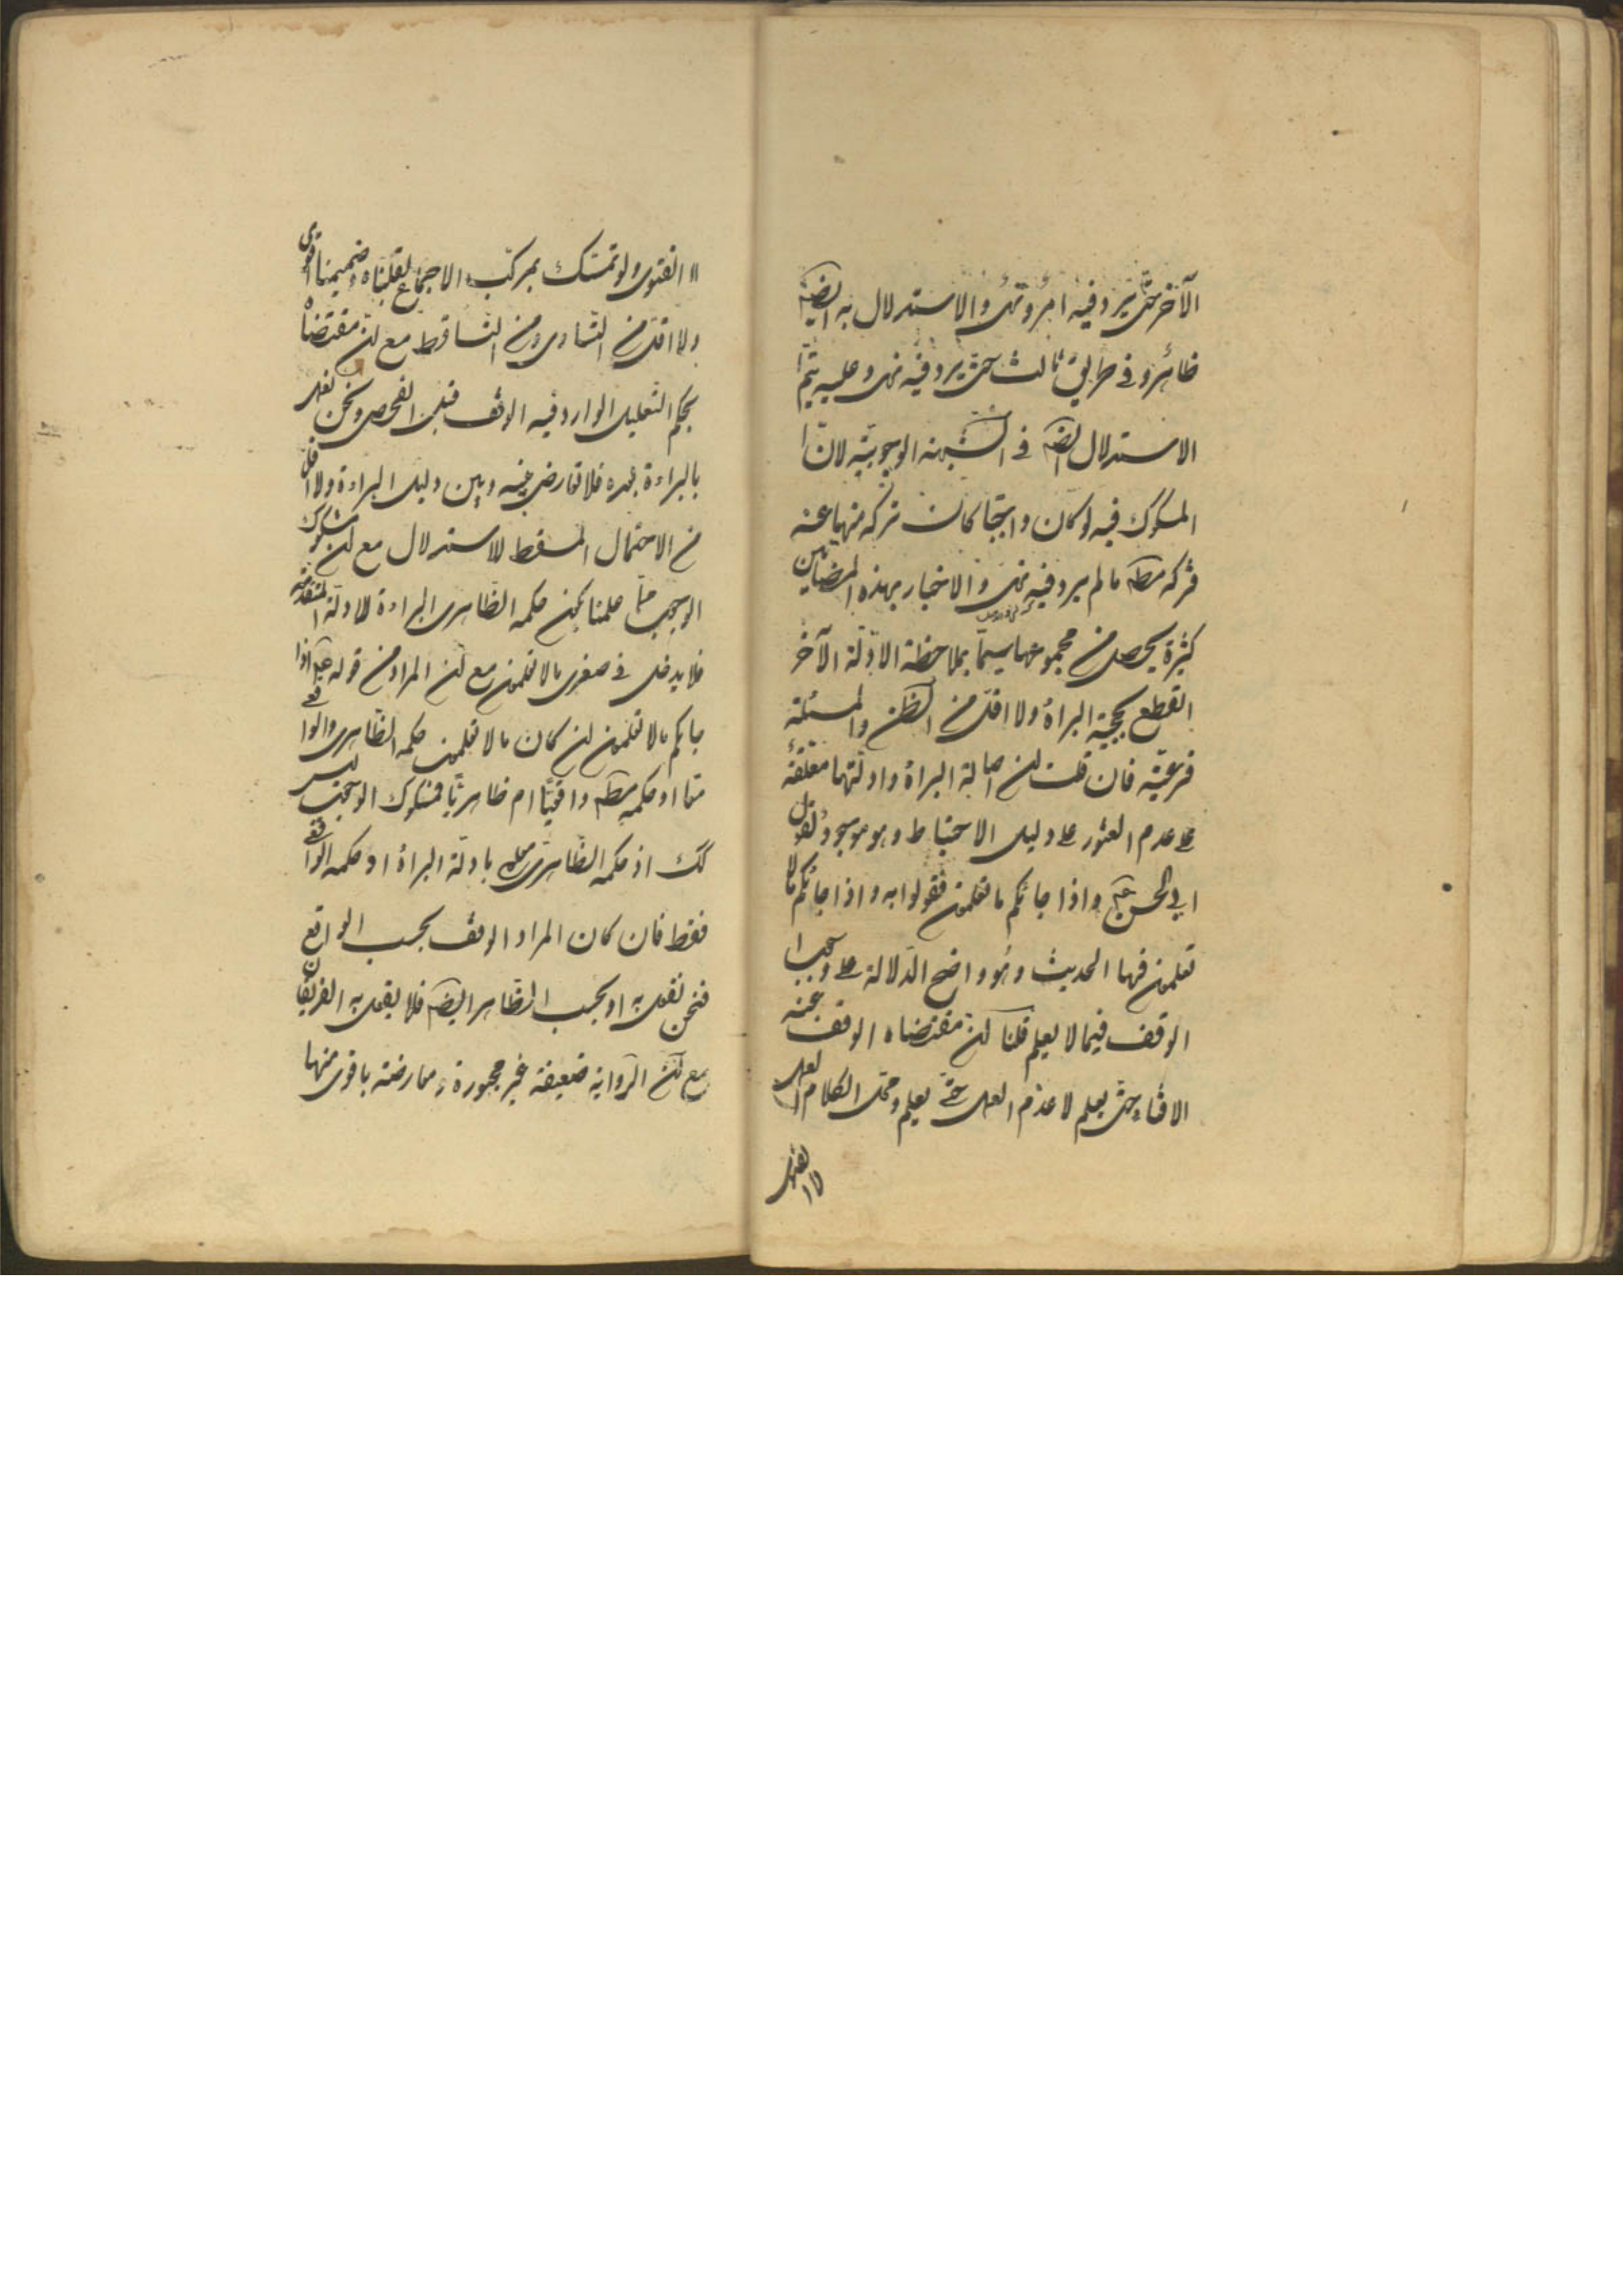 الآخر حتّى يرد فيه امر و نهى و الاستدلال به ايضا
ظاهر و فى طريق ثالث حتّى يرد فيه نهى و عليه يتمّ
الاستدلال ايضا فى الشبهة الوجوبيّة لانّ
المشكوك فيه لو كان واجبا كان تركه منهيا عنه
فتركه مطلق ما لم يرد فيه نهى و الاخبار بهذه المضامين
كثيرة يحصل من مجموعها سيّما بملاحظة الادلّة الآخر
القطع بحجية البراءة و لا اقلّ من الظن و المسئلة
فرعيّة فان قلت ان اصالة البراءة و ادلّتها معلّقة
على عدم العثور على دليل الاحتياط و هو موجود لقول
ابى الحسن ع و اذا جائكم ما تعلمون فقولوا به و اذا جائكم ما لا
تعلمون فها الحديث و هو واضح الدّلالة على وجوب
الوقف فيما لا يعلم قلنا انّ مقتضاه الوقف عن
الافتاء حتّى يعلم لا عدم العمل حتّى يعلم و محلّ الكلام العمل
لا الفتوى
لا الفتوى و لو تمسّك بمركّب الاجماع لقلبناه و ضميمتنا اقوى
و لا اقلّ من التّساوى و من التّساقط مع انّ مقتضاه
بحكم التعليل الوارد فيه الوقف قبل الفحص و نحن نعمل
بالبراءة بعده فلا تعارض بينه و بين دليل البراءة و لا اقلّ
من الاحتمال المسقط للاستدلال مع ان مشكوك
الوجوب ممّا علمنا كون حكمه الظّاهرى البراءة للادلّة المتقدّمة
فلا يدخل فى صغرى ما لا تعلمون مع ان المراد من قوله ع اذا
جائكم ما لا تعلمون ان كان ما لا تعلمون حكمه الظّاهرى و الواقعى
معا او حكمه مطلقا واقعيّا ام ظاهريّا فمشكوك الوجوب ليس
كك اذ حكمه الظّاهرى معلوم بادلّة البراءة او حكمه الواقعى
فقط فان كان المراد الوقف بحسب الواقع
فنحن نقول به او بحسب الظّاهر ايضا فلا يقول به الفريقان
مع انّ الرّواية ضعيفة غير مجبورة و معارضة باقوى منها